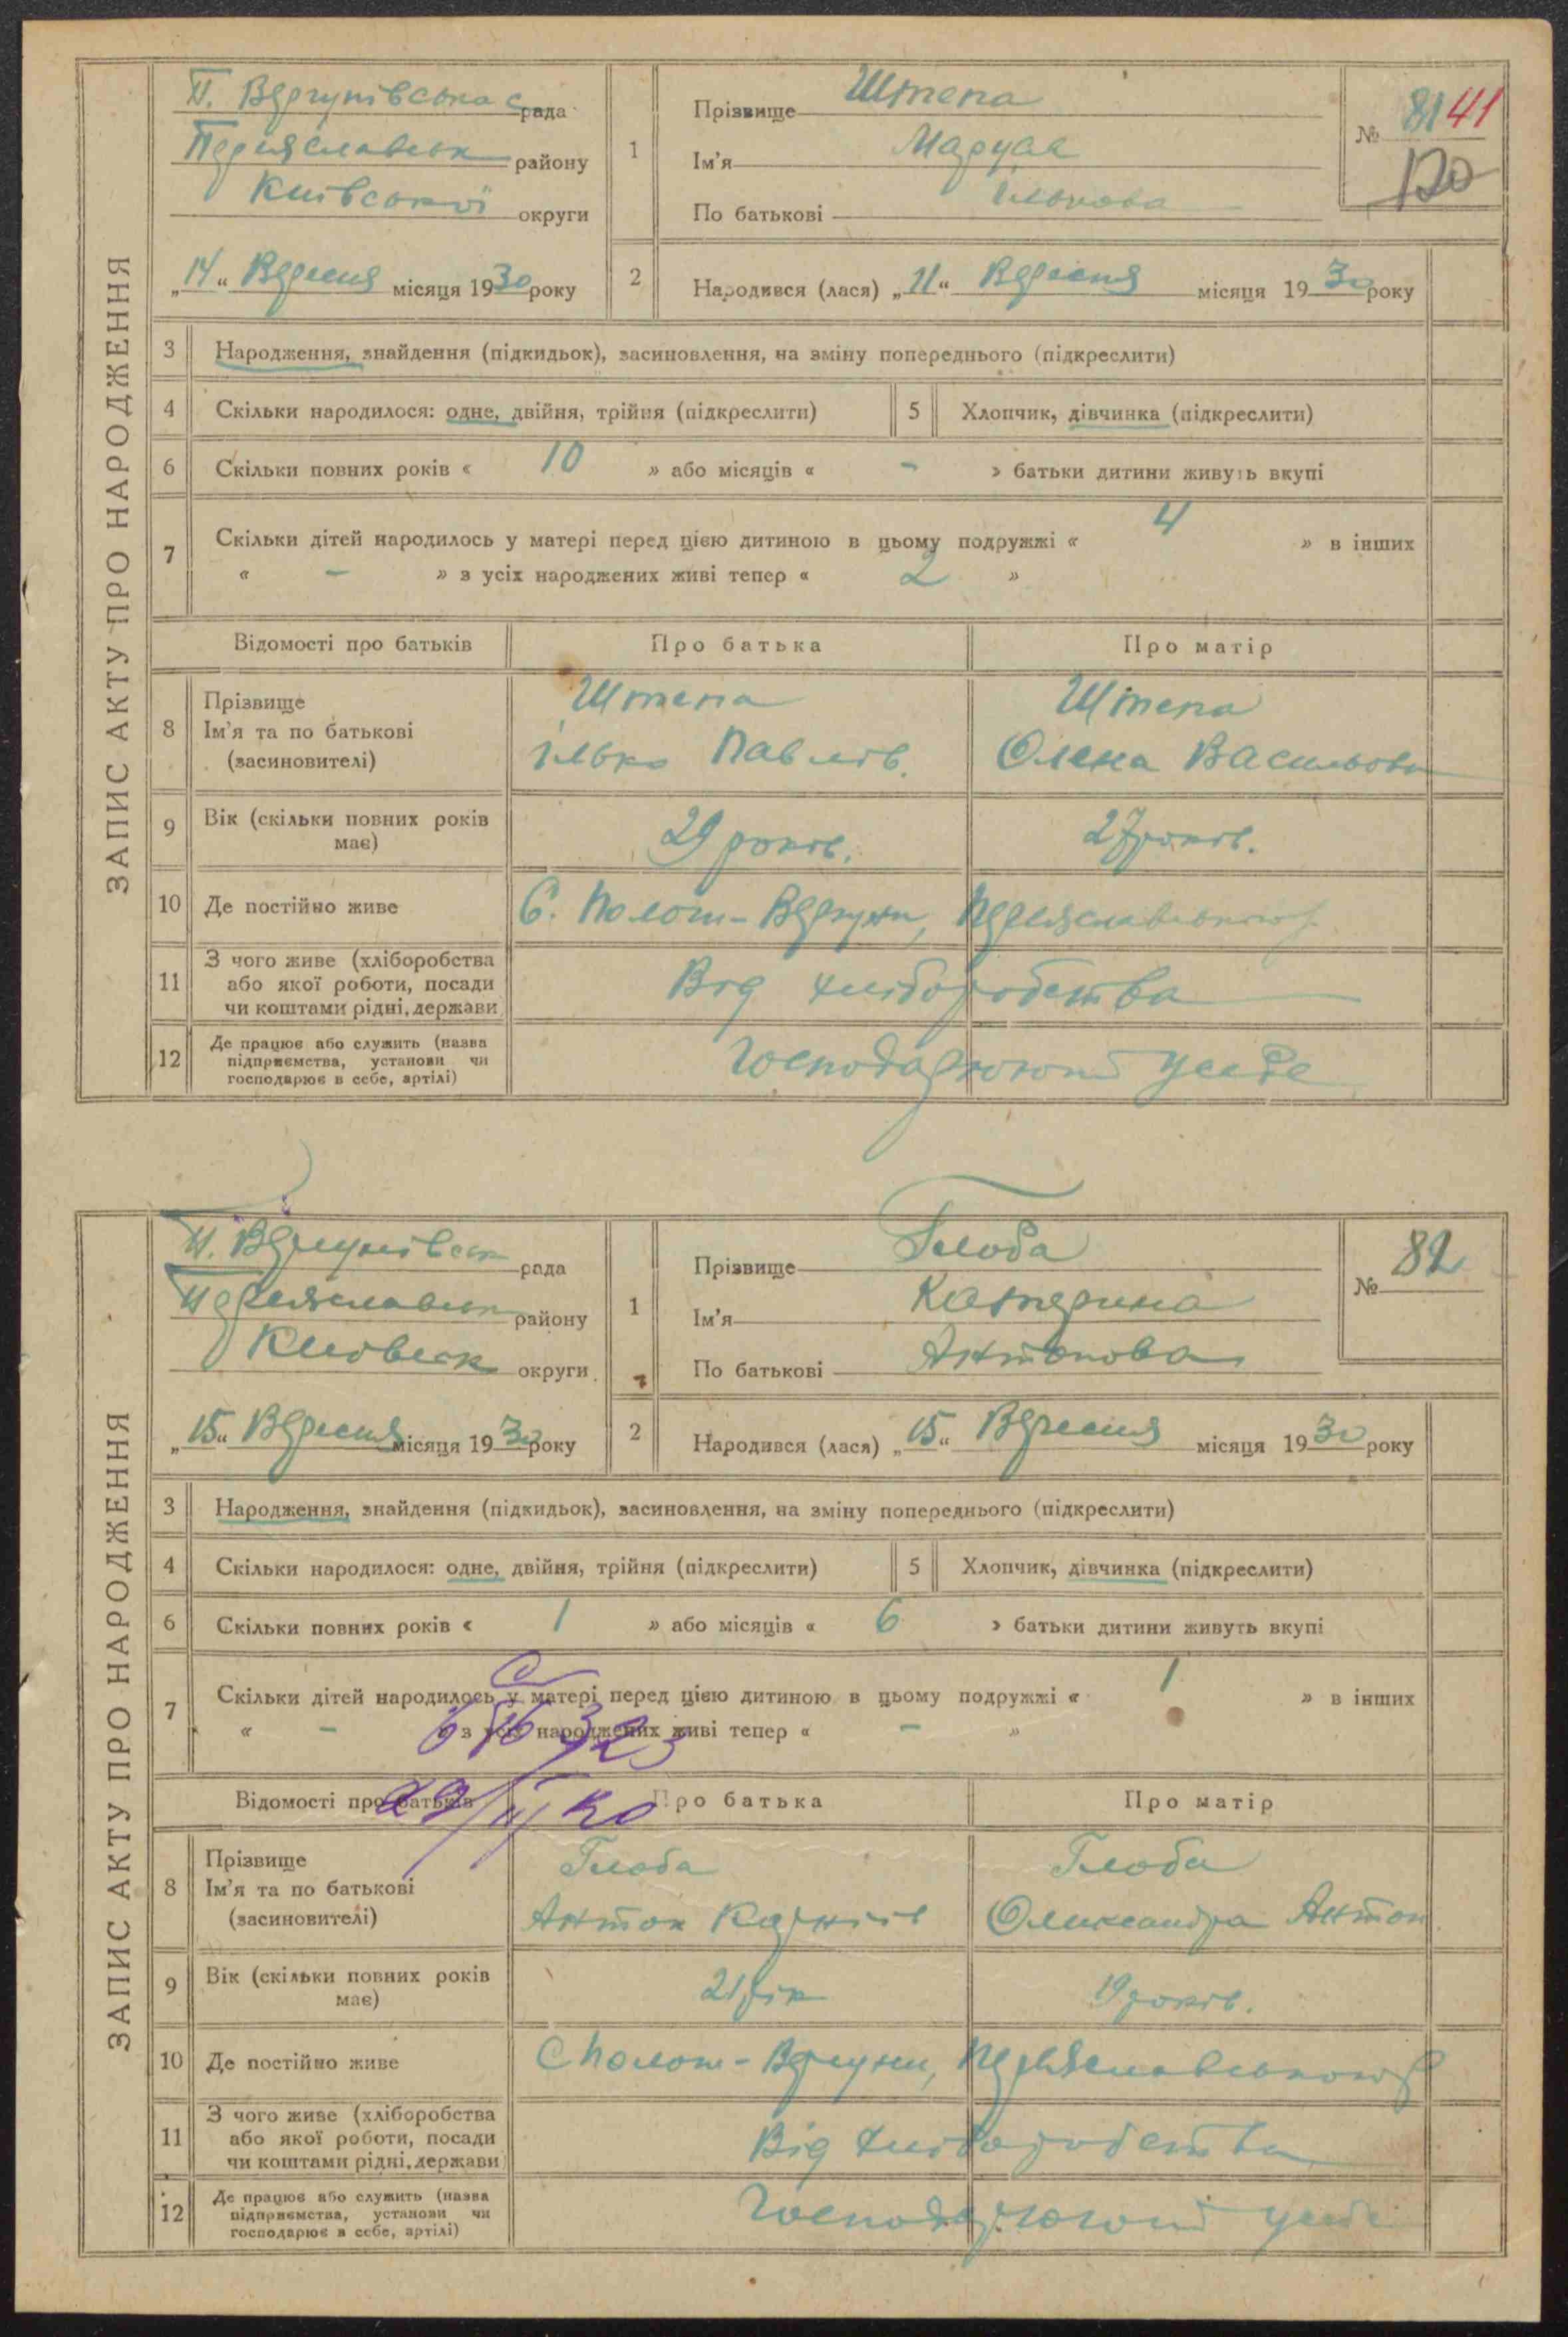 ЗАПИС АКТУ ПРО НАРОДЖЕННЯ
П. Вергунівська с рада
Переяславськ району
Київської округи
„14“ Вересня місяця 1930 року
1
Прізвище Штепа
Ім'я Маруся
По батькові Ількова
№ 81 41
120
2
Народився (лася) „11“ Вересня місяця 1930 року
3 Народження, знайдення (підкидьок), засиновлення, на зміну попереднього (підкреслити)
4 Скільки народилося: одне, двійня, трійня (підкреслити) 5 Хлопчик, дівчинка (підкреслити)
6 Скільки повних років « 10 » або місяців « - » батьки дитини живуть вкупі
7 Скільки дітей народилось у матері перед цією дитиною в цьому подружжі « 4 » в інших
« - » з усіх народжених живі тепер « 2 »
Відомості про батьків Про батька Про матір
8 Прізвище Штепа Штепа
Ім'я та по батькові Ілько Павлів. Олена Васильовн
(засиновителі)
9 Вік (скільки повних років має) 29 років. 27 років.
10 Де постійно живе С. Полог-Вергуни, Переяславського р.
11 З чого живе (хліборобства
або якої роботи, посади
чи коштами рідні, держави Від хліборобства
12 Де працює або служить (назва
підприємства, установи чи
господарює в себе, артілі) Господарюють у себе
ЗАПИС АКТУ ПРО НАРОДЖЕННЯ
П. Вергунівськ рада
Переяславськ району
Київськ округи
„15“ Вересня місяця 1930 року
1
Прізвище Глоба
Ім'я Катерина
По батькові Антонова
№ 82
2
Народився (лася) „15“ Вересня місяця 1930 року
3 Народження, знайдення (підкидьок), засиновлення, на зміну попереднього (підкреслити)
4 Скільки народилося: одне, двійня, трійня (підкреслити) 5 Хлопчик, дівчинка (підкреслити)
6 Скільки повних років « 1 » або місяців « 6 » батьки дитини живуть вкупі
7 Скільки дітей народилось у матері перед цією дитиною в цьому подружжі « 1 » в інших
« - » з усіх народжених живі тепер « - »
Відомості про батьків Про батька Про матір
8 Прізвище Глоба Глоба
Ім'я та по батькові Антон Олександра Антон
(засиновителі)
9 Вік (скільки повних років має) 21 рік 19 років.
10 Де постійно живе С Полог-Вергуни, Переяславського р
11 З чого живе (хліборобства
або якої роботи, посади
чи коштами рідні, держави Від хліборобства
12 Де працює або служить (назва
підприємства, установи чи
господарює в себе, артілі) Господарюють у себе